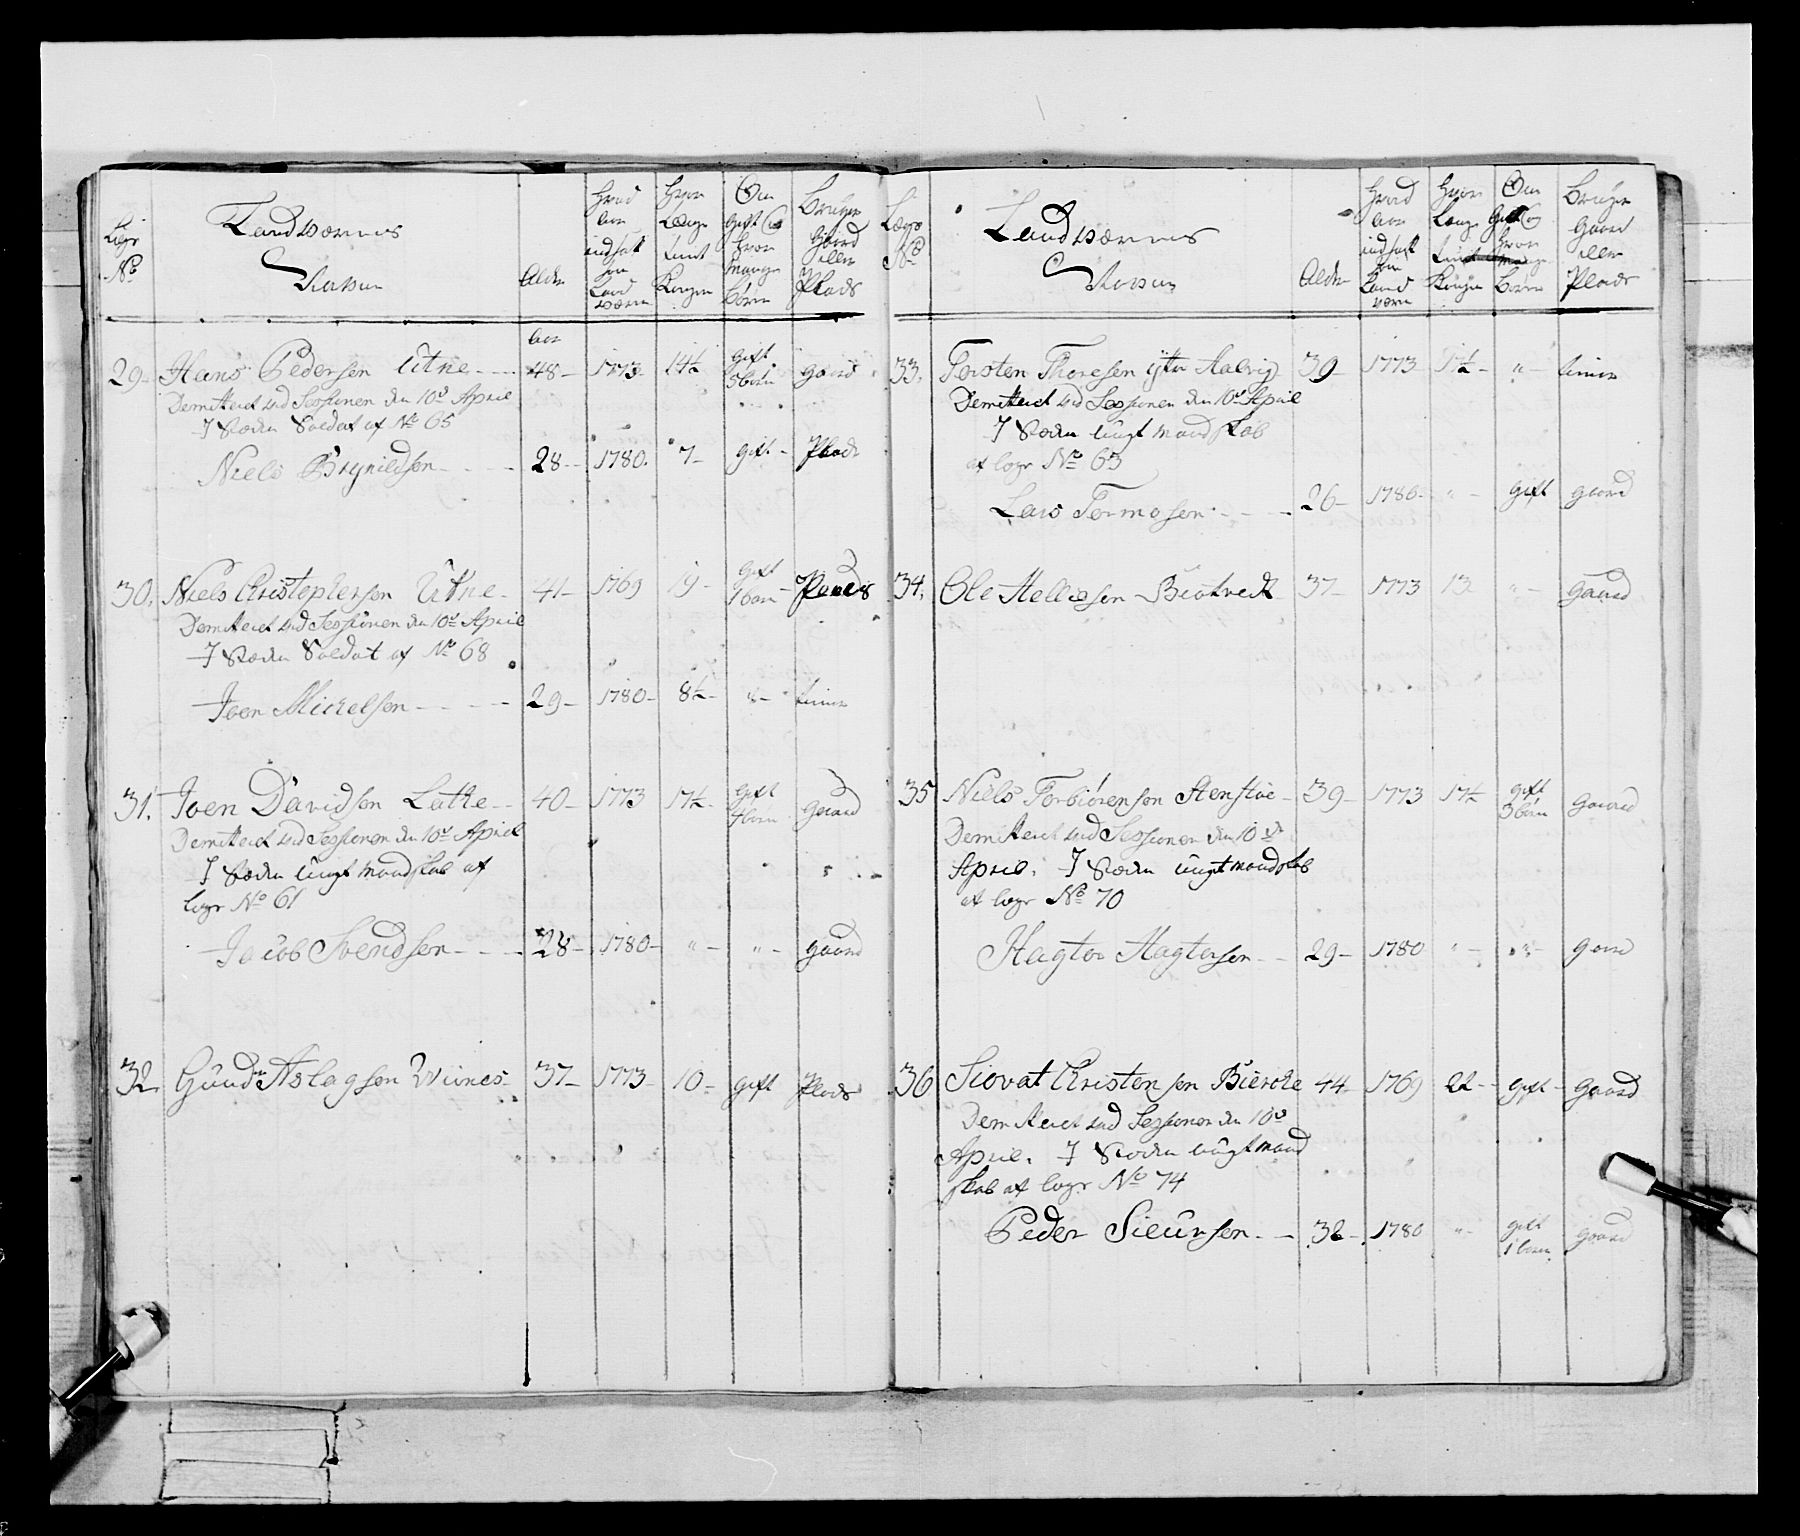 Lægs
No
Landværnets
Alder
Hvad
Aar
indsatt
for
Land
værn
Hvor
Længe
tient
Kongen
Om
Gift og
hvor
Mange
børn
Bruger
Gaard
eller
Plads
Aar
29. Hans Pedersen Utne 48 1773 14½ gift 3 børn gaard
Demitteret ved Sessionen den 10de April
I Steden Soldat af No 65
Niels Brynildsen 28 1780 7 gift Plads
30. Niels Christophersen Utne 41 1769 19 gift 1 barn Plads
Demitteret ved Sessionen den 10de April
I Steden Soldat af No 68
Joen Michelsen 29 1780 8½ " tiener
31. Joen Davidsen Lutte 40 1773 17½ gift 4 børn gaard
Demitteret ved Sessionen den 10de April
I Steden ungt mandskab af
lægs No 61
Jacob Svendsen 28 1780 " " gaard
32 Gunder Aslagsen Wiines 37 1773 10 gift Plads
Lægs
No
Landværnets
Alder
Hvad
Aar
indsatt
for
Land
værn
Hvor
Længe
tient
Kongen
Om
Gift og
hvor
mange
Børn
Bruger
Gaard
eller
Plads
33. Torsten Thoresen ytre Aalvig 39 1773 " tiener
Demitteret ved Sessionen den 10de April
I Steden ungt mandskab
af lægs No 63
Lars Tormosen 26 1780 " gift gaard
34. Ole Hellesen Biotvedt 37 1773 13 " gaard
35 Niels Torbiørensen Stenstøe 39 1773 17½ gift 3 børn gaard
Demitteret ved Sessionen den 10de
April. I Steden ungt mandskab
af lægs No 70
Hagtor Hagtorsen 29 1780 " " gaard
36 Siovat Christensen Bierche 44 1769 22 gift gaard
Demitteret ved Sessionen den 10de
April. I Steden ungt mand
skab af lægs No 74
Peder Siursen 32 1780 " gift 1 barn gaard